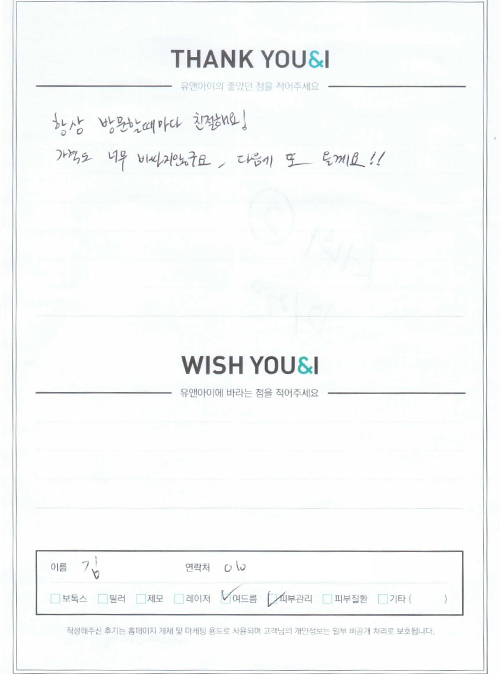 THANK YOU&I
유앤아이의 좋았던 점을 적어주세요
항상 방문할때마다 친절해요!
가격도 너무 비싸지않구요, 다음에 또 올께요!!
WISH YOU&I
유앤아이에 바라는 점을 적어주세요
이름 김 연락처 010
보톡스 필러 제모 레이저 여드름 피부관리 피부질환 기타 ( )
작성해주신 후기는 홈페이지 게재 및 마케팅 용도로 사용되며 고객님의 개인정보는 일부 비공개 처리로 보호됩니다.